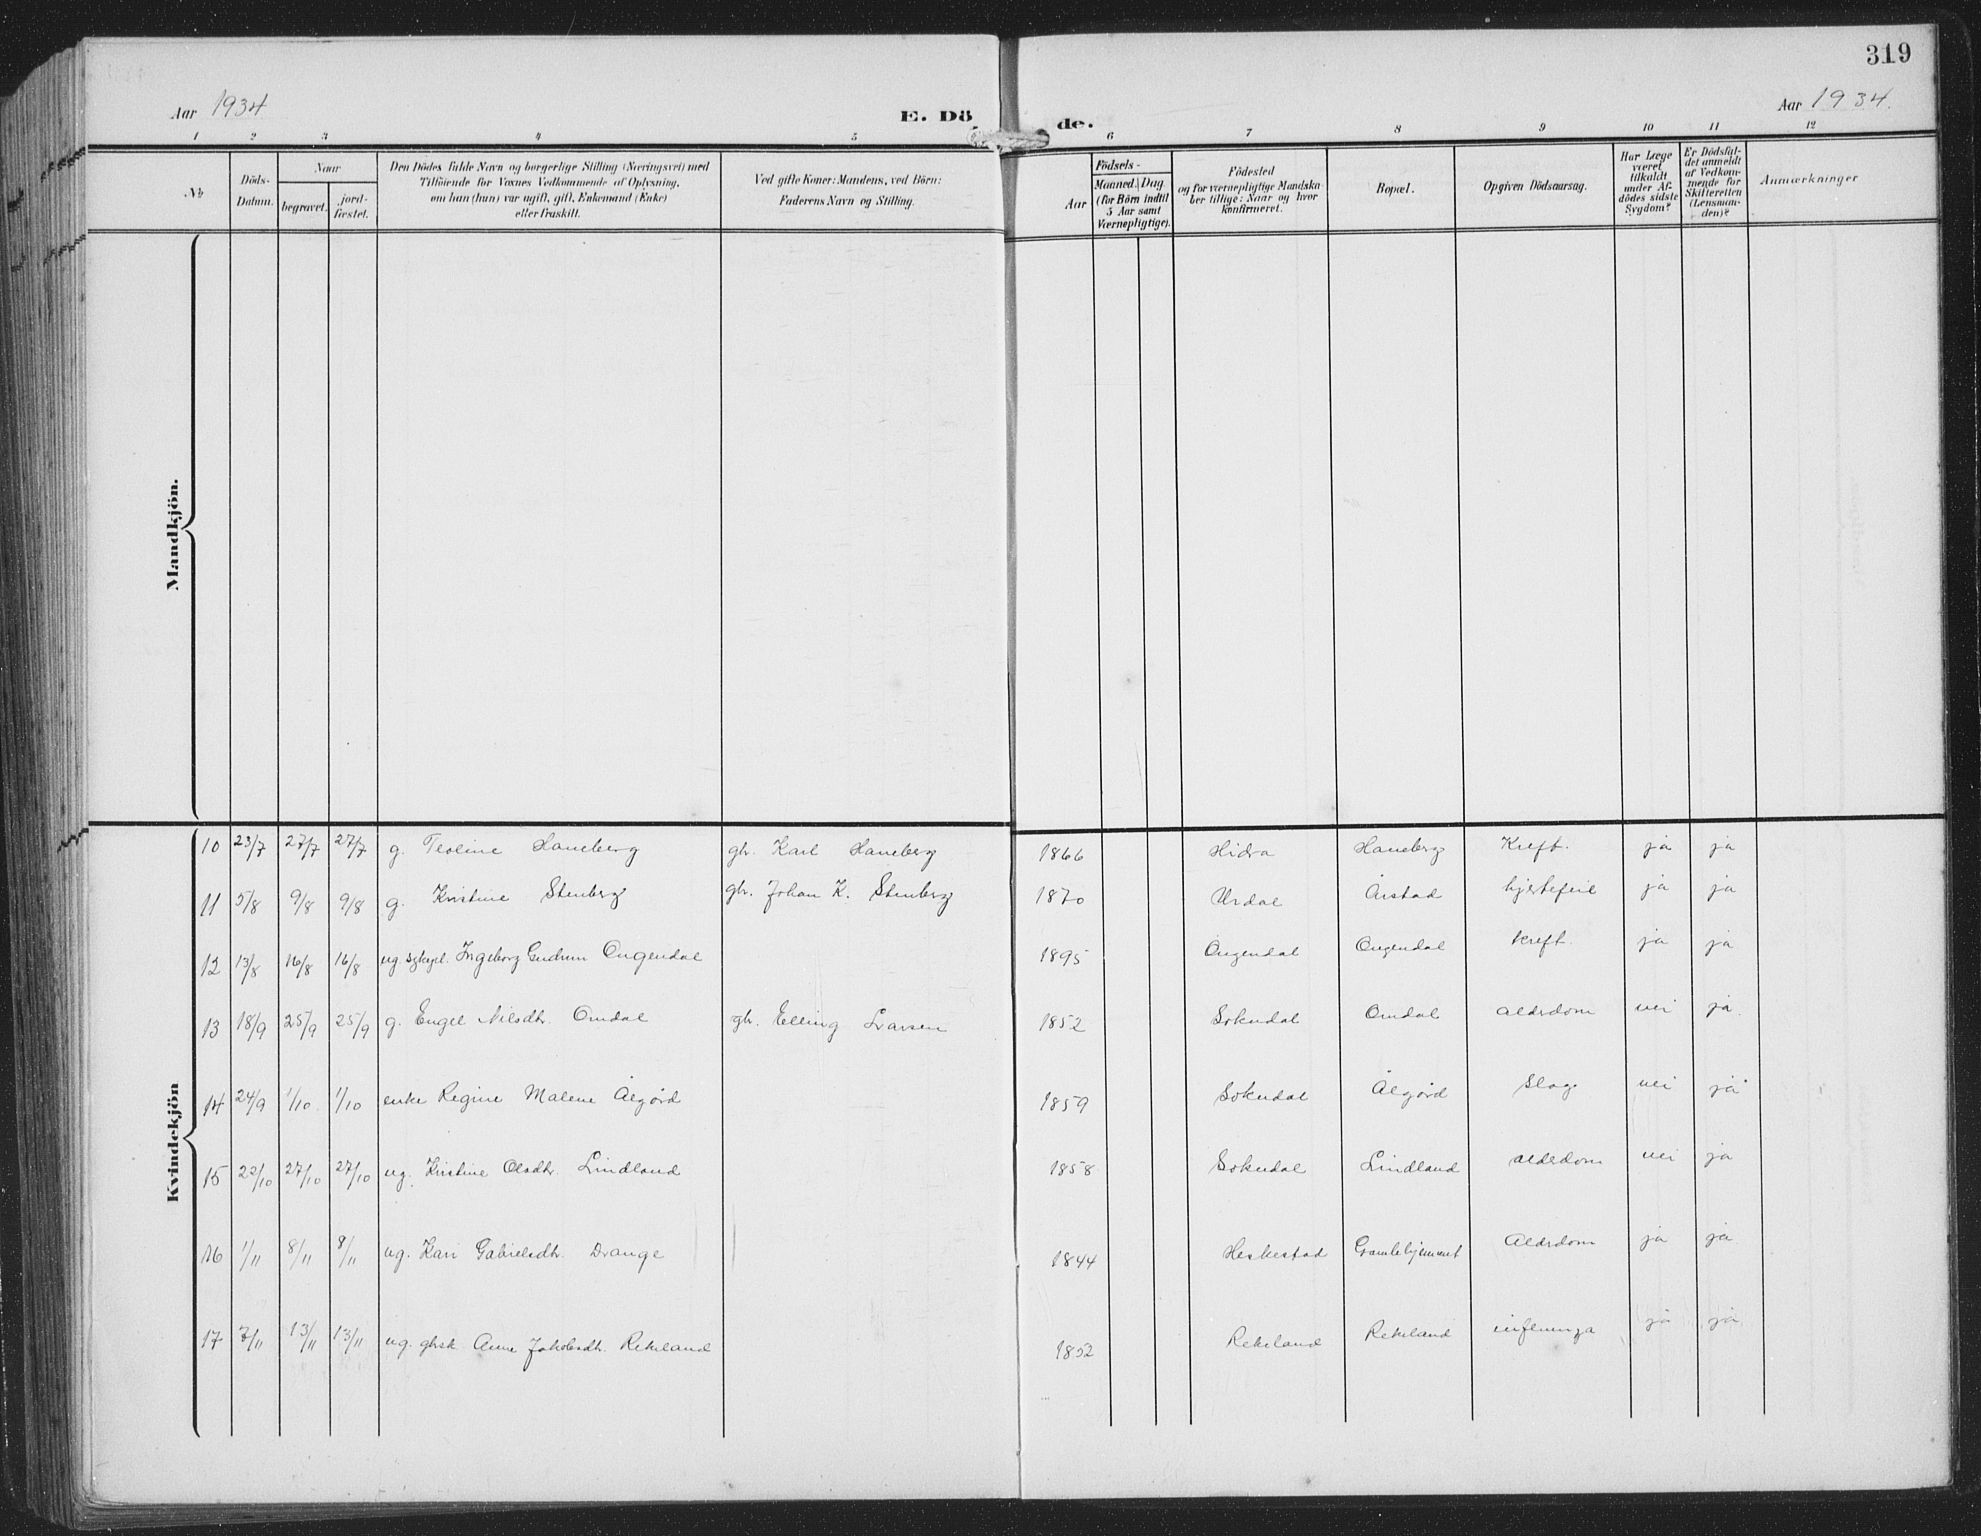 319
Aar 1934
E. Dö
de.
Aar 1934.
1 2 3 4 5 6 7 8 9 10 11 12
No
Döds-
Datum.
Naar
begravet.
jord-
fæstet.
Den Dödes fulde Navn og borgerlige Stilling (Næringsvei) med
Tilföiende for Voxnes Vedkommende af Oplysning,
om han (hun) var ugift, gift, Enkemand (Enke)
eller fraskilt.
Ved gifte Koner: Mandens, ved Börn:
Faderens Navn og Stilling.
Aar
Födsels-
Maaned. Dag.
(for Börn indtil
5 Aar samt
Værnepligtige).
Födested
og for værnepligtige Mandska-
ber tillige: Naar og hvor
konfirmeret.
Bopæl.
Opgiven Dödsaarsag.
Har Læge
været
tilkaldt
under Af-
dödes sidste
Sygdom?
Er Dödsfal-
det anmeldt
af Vedkom-
mende for
Skifteretten
(Lensman-
den)?
Anmærkninger
Mandkjön.
Kvindekjön
10 23/7 27/7 27/7 g. Teoline Haneberg gh. Karl Haneberg 1866 Hidra Haneberg Kreft. ja ja
11 5/8 9/8 9/8 g. Kristine Stenberg gh. Johan K. Stenberg 1870 Urdal Årstad hjertefeil ja ja
12 13/8 16/8 16/8 ug. sykepl. Ingeborg Gudrun Ougendal 1895 Ougendal Ougendal kreft. ja ja
13 18/9 25/9 25/9 g. Engel Nilsdtr. Omdal gh. Elling Larsen 1852 Sokndal Omdal alderdom nei ja.
14 24/9 1/10 1/10 enke Regine Malene Ålgård 1859 Sokndal Ålgård Slag nei ja
15 22/10 27/10 27/10 ug. Kristine Olsdtr. Lindland 1858 Sokndal Lindland alderdom nei ja
16 1/11 8/11 8/11 ug. Kari Gabrielsdtr. Drange 1844 Heskestad Gamlehjemmet Alderdom ja ja
17 7/11 13/11 13/11 ug. ghsk. Anne Jakobsdtr. Rekeland 1852 Rekeland Rekeland influenza ja ja